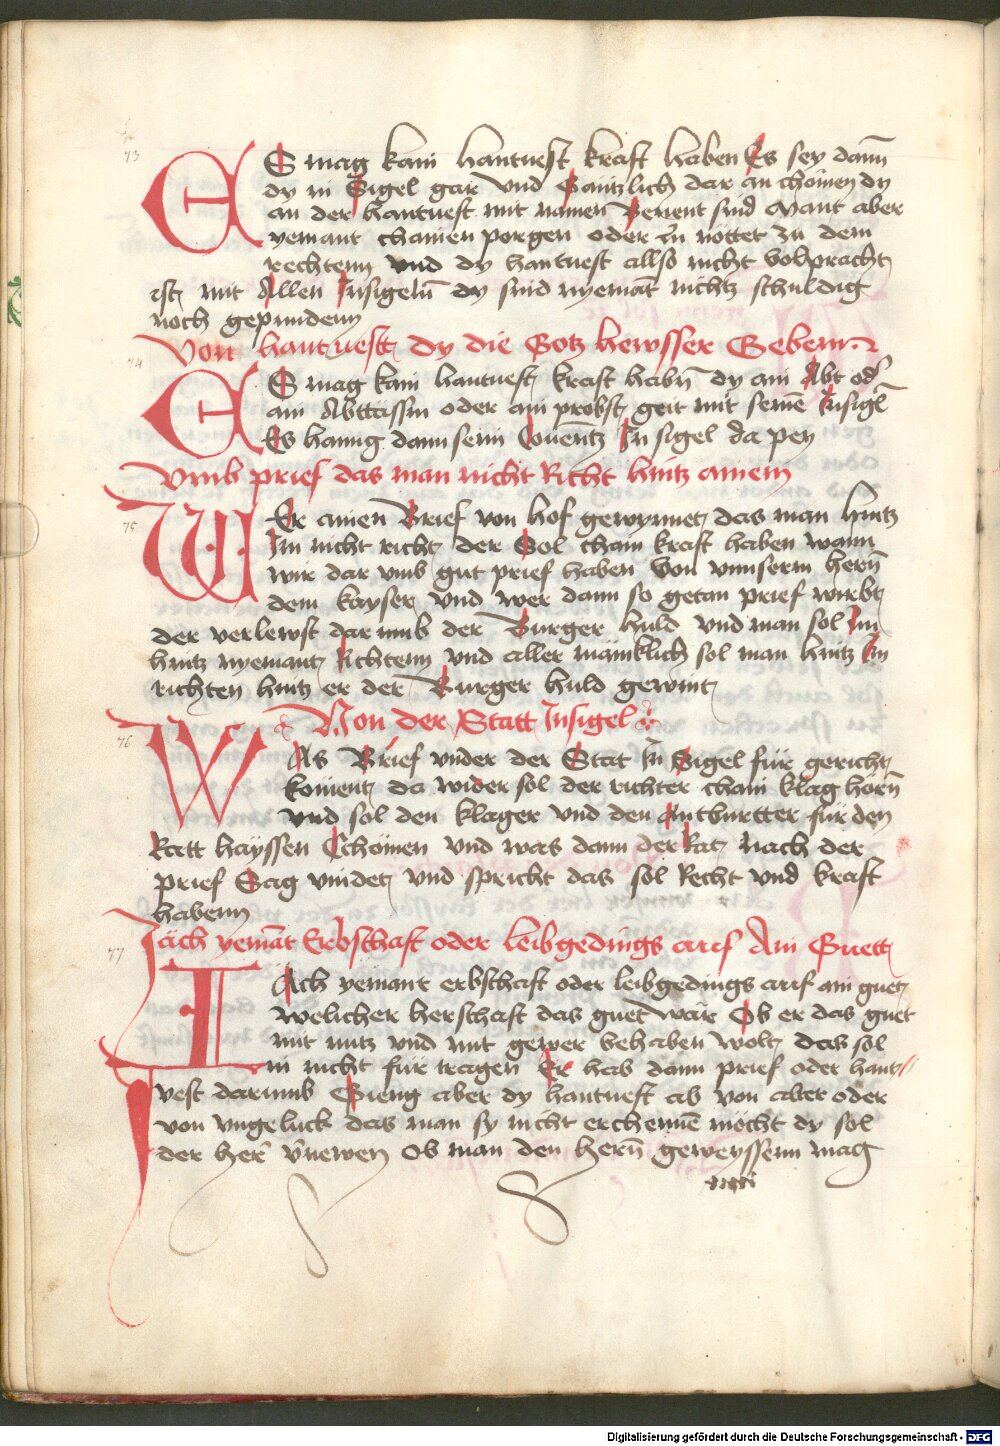 73
ES mag kain hantuest kraft haben Es sey dann
dy in Sigel gar vnd Gäntzlich dar an chömen dy
an der hantuest mit namen Benent sind Mant aber
yemant chainen porgen oder in nöttet zu dem
rechtenn vnd dy hantuest allso nicht volpracht
ist mit Allen Insigelñ dy sind nyemāt nichtz schuldig
noch gepundenn
74
Von hantuestt dy die Gotz hewsser Gebenn
ES mag kain hantuest kraft habñ dy ain Abt od
ain Abttässin oder ain probst geit mit seinē Insigl
Es hanng dann seinn Conentz In sigel da pey
Vmb prief das man nicht Richt hintz ainem
75
WEr ainen Brief von hof gewynnet das man hintz
Im nicht richt der Sol chain kraft haben wann
wir dar vmb gut prief haben Von vnnserm herñ
dem kayser vnd wer dann so getan prief wirbt
der verlewst dar vmb der Burger huld vnd man sol Im
hintz nyemant Richtenn vnd aller mäniklich sol man hintz Im
richten hintz er der Burger huld gewint
Von der Statt Insigel
76
WAs Brief vnder der Stat In Sigel für gericht
kömēnt da wider sol der richter chain klag hörñ
vnd sol den klager vnd den Antburtter für den
Ratt häyssen Chömen vnd was dann der Rat Nach der
prief Sag vindet vnd spricht das sol Recht vnd kraft
habenn
77
Jäch yemāt Erbschaft oder leibgedings auf Ain Guett
IAch yemant erbschaft oder leibgedings auf ain guet
welicher herschaft das guet wär Ob er das guet
mit nutz vnd mit gewer behaben wolt das sol
in nicht für tragen Er hab dann prief oder hant
vest darumb Gieng aber dy hantuest ab von alter oder
von vngelück das man sy nicht erchennē möcht dy sol
der her vnewen Ob man den herñ geweyssenn mag
Digitalisierung gefördert durch die Deutsche Forschungsgemeinschaft - DFG